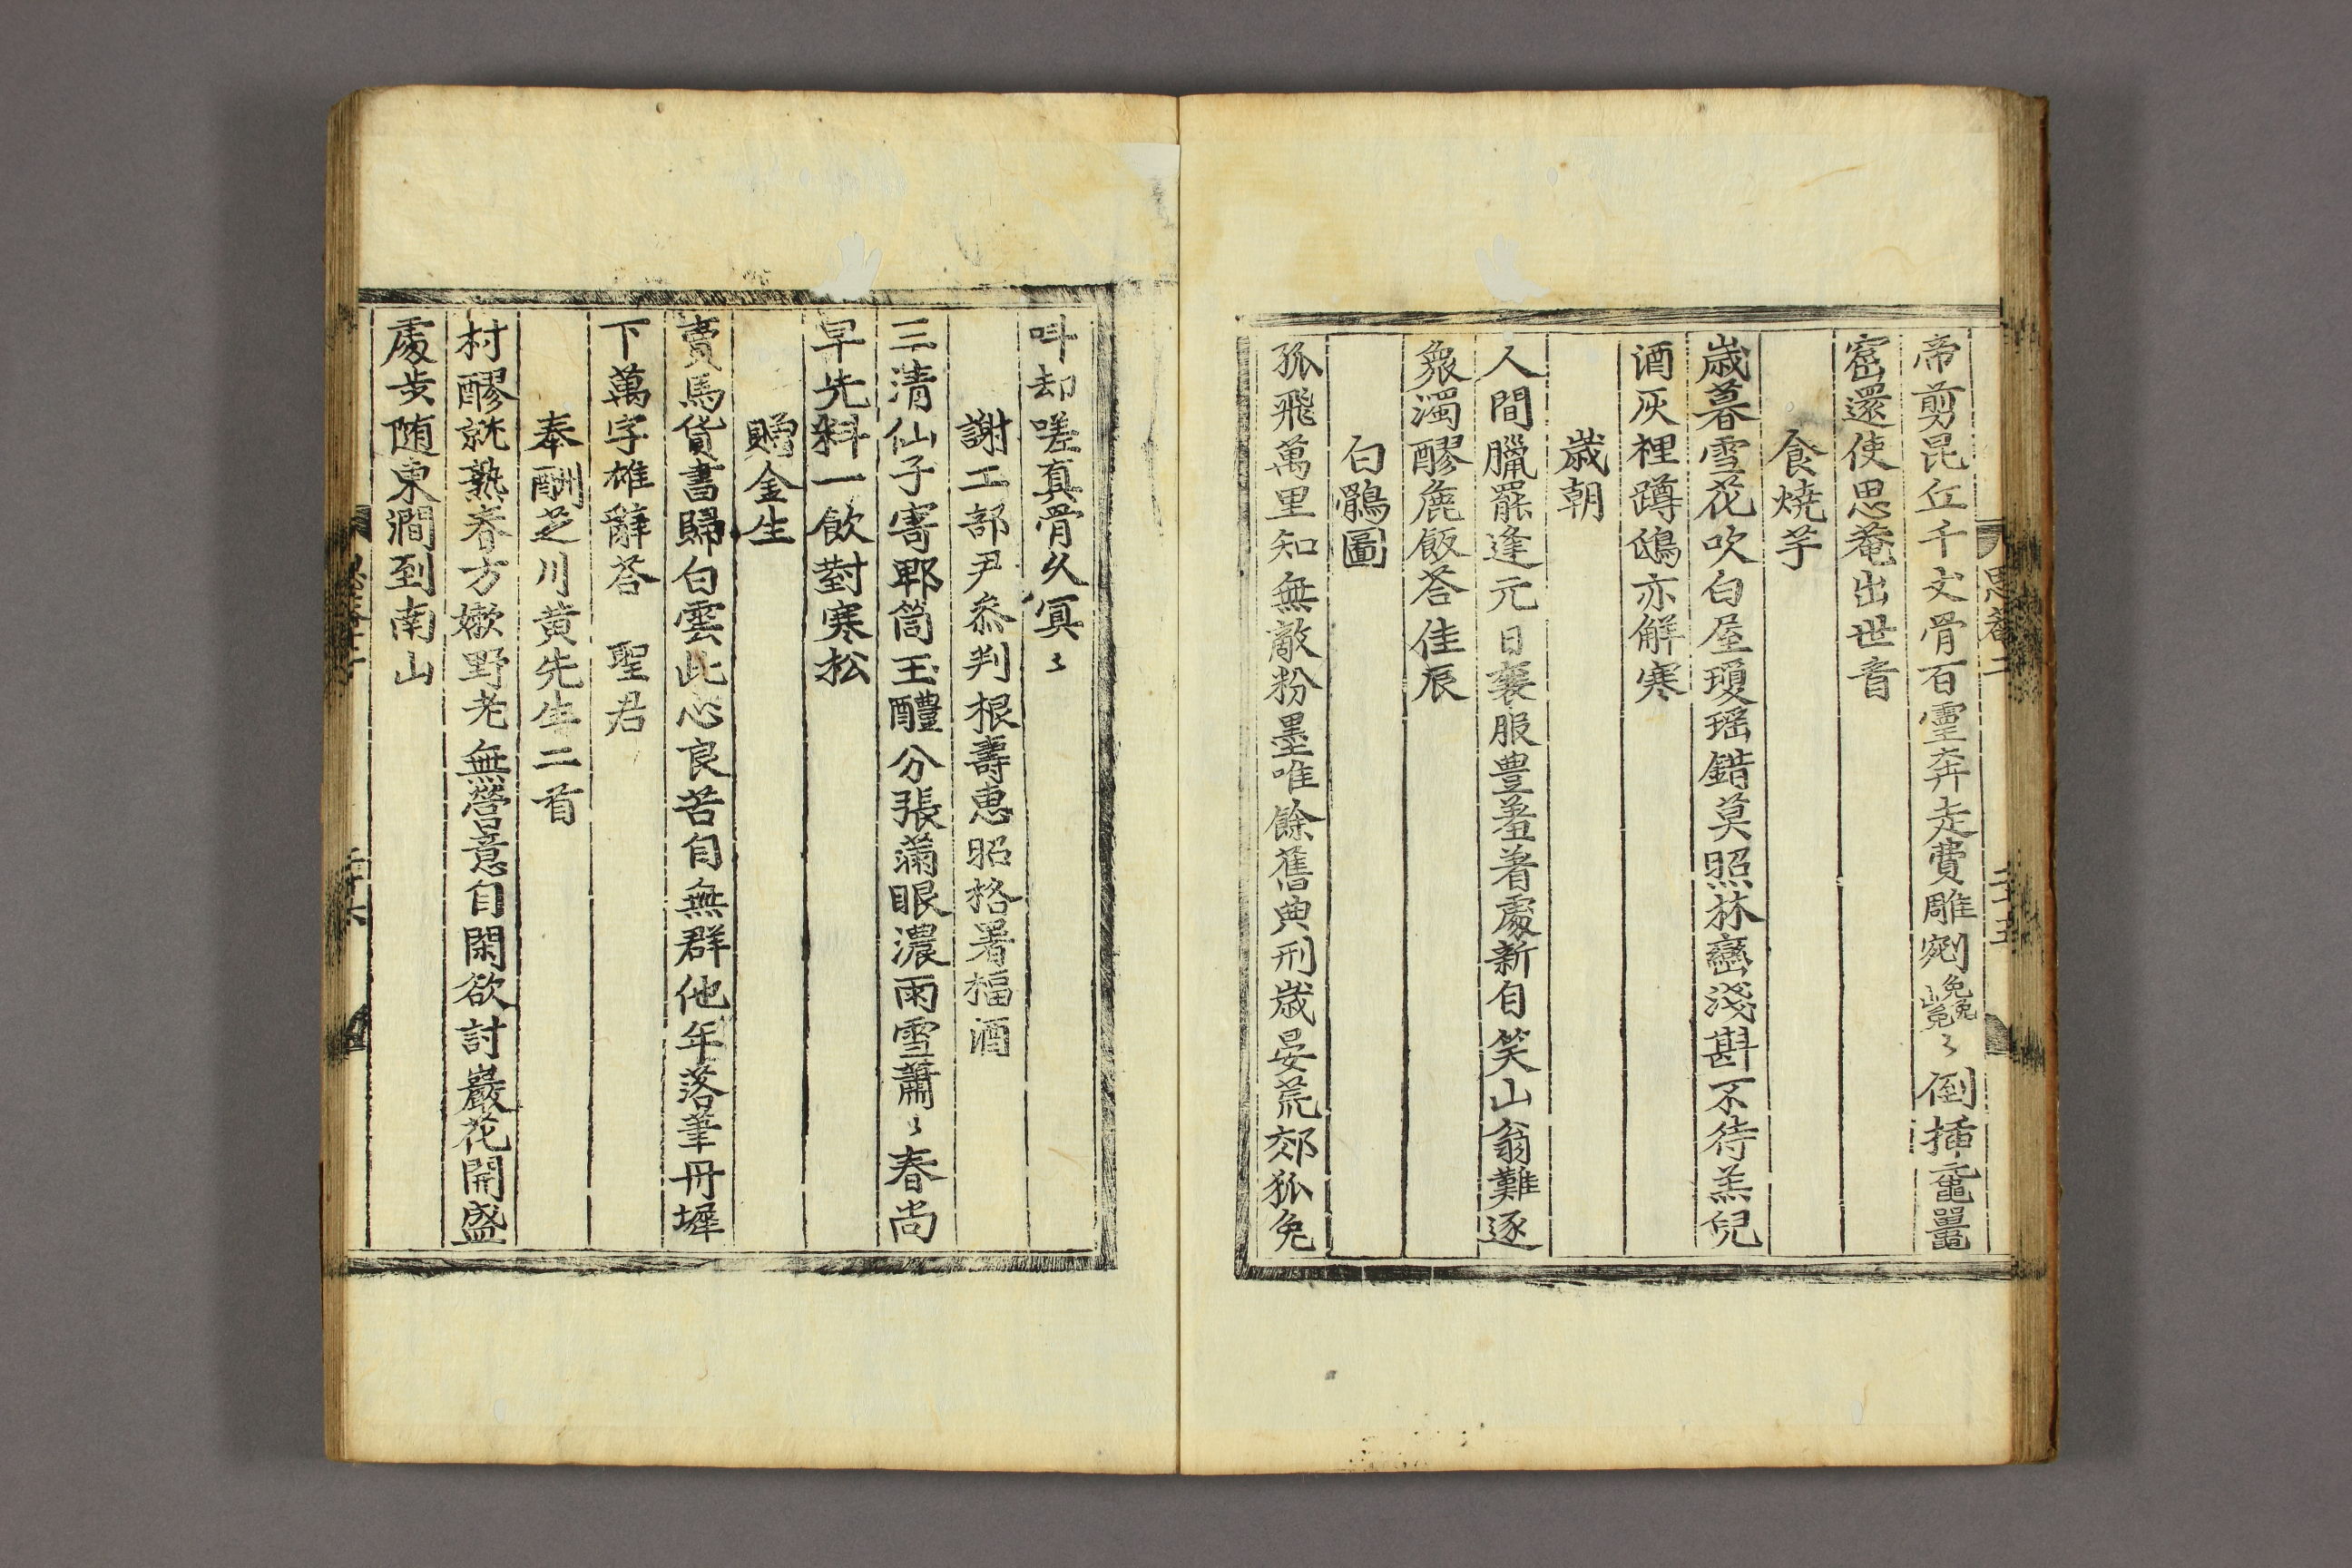 思菴二
二十五
帝剪昆丘千丈骨百靈奔走費雕剜巉〻倒插黿鼉
窟還使思菴出世音
食燒芋
歲暮雪花吹白屋瓊瑶錯莫照林巒淺斟不待羔兒
酒灰裡蹲鴟亦解寒
歲朝
人間臘罷逢元日褻服豊羞着處新自笑山翁難逐
衆濁醪麁飯荅佳辰
白鶻圖
孤飛萬里知無敵粉墨唯餘舊典刑歲晏荒郊狐兔
叫却嗟真骨久冥〻
謝工部尹叅判根壽惠昭格署福酒
三清仙子寄郫筒玉醴分張滿眼濃雨雪蕭〻春尚
早先料一飲對寒松
贈金生
賣馬貨書歸白雲此心良苦自無群他年落筆丹墀
下萬字雄辭荅 聖君
奉酬芝川黃先生二首
村醪就熟春方嫩野老無營意自閑欲討巖花開盛
處步随東澗到南山
二十六